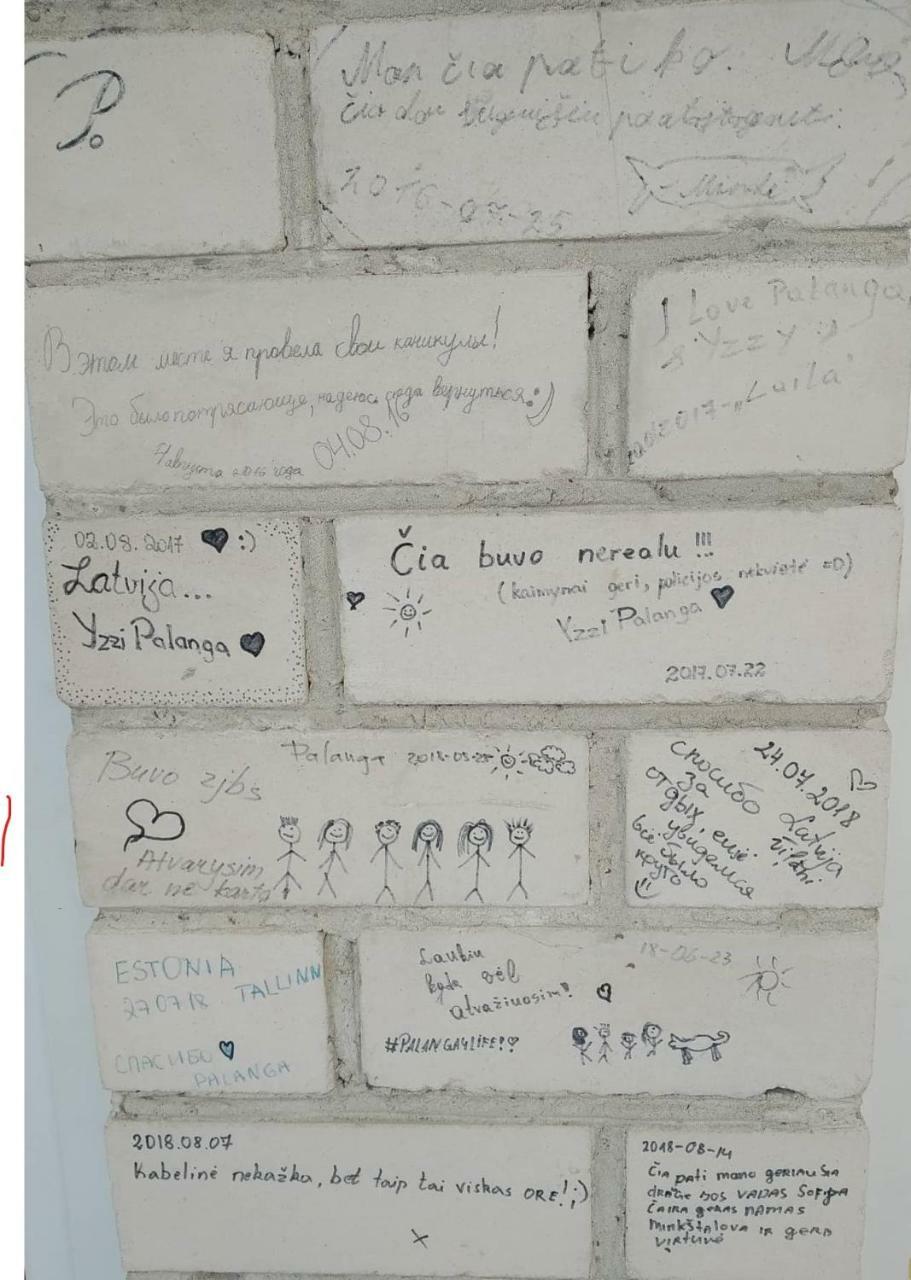 P.
Man čia patiko.
čia dar
2016-07-25
В этом месте я провела свои каникулы!
Это было потрясающе, надеюсь сюда вернуться. :)
4 августа 2016 года 04.08.16
I Love Palanga
Yzzy :)
2017 - „Luila"
02.08.2017 :)
Latvija...
Yzzi Palanga
Čia buvo nerealu !!!
(kaimynai geri, policijos nekvietė =D)
Yzzi Palanga
2017.07.22
Palanga
Buvo zjbs
Atvarysim
dar ne kartą!
24.07.2018
Latvija
Спосибо
за
отдых, ещё
увидемся
всё было
круто
ESTONIA
27 07 18 TALLINN
СПАСИБО
PALANGA
18-06-23
Laukiu
kada vėl
atvažiuosim!
#PALANGA4LIFE!?
2018.08.07
Kabelinė nekažka, bet taip tai viskas ORE! ;)
x
2018-08-14
Čia pati mano geriausia
geras namas
minkštalova ir gera
virtuvė